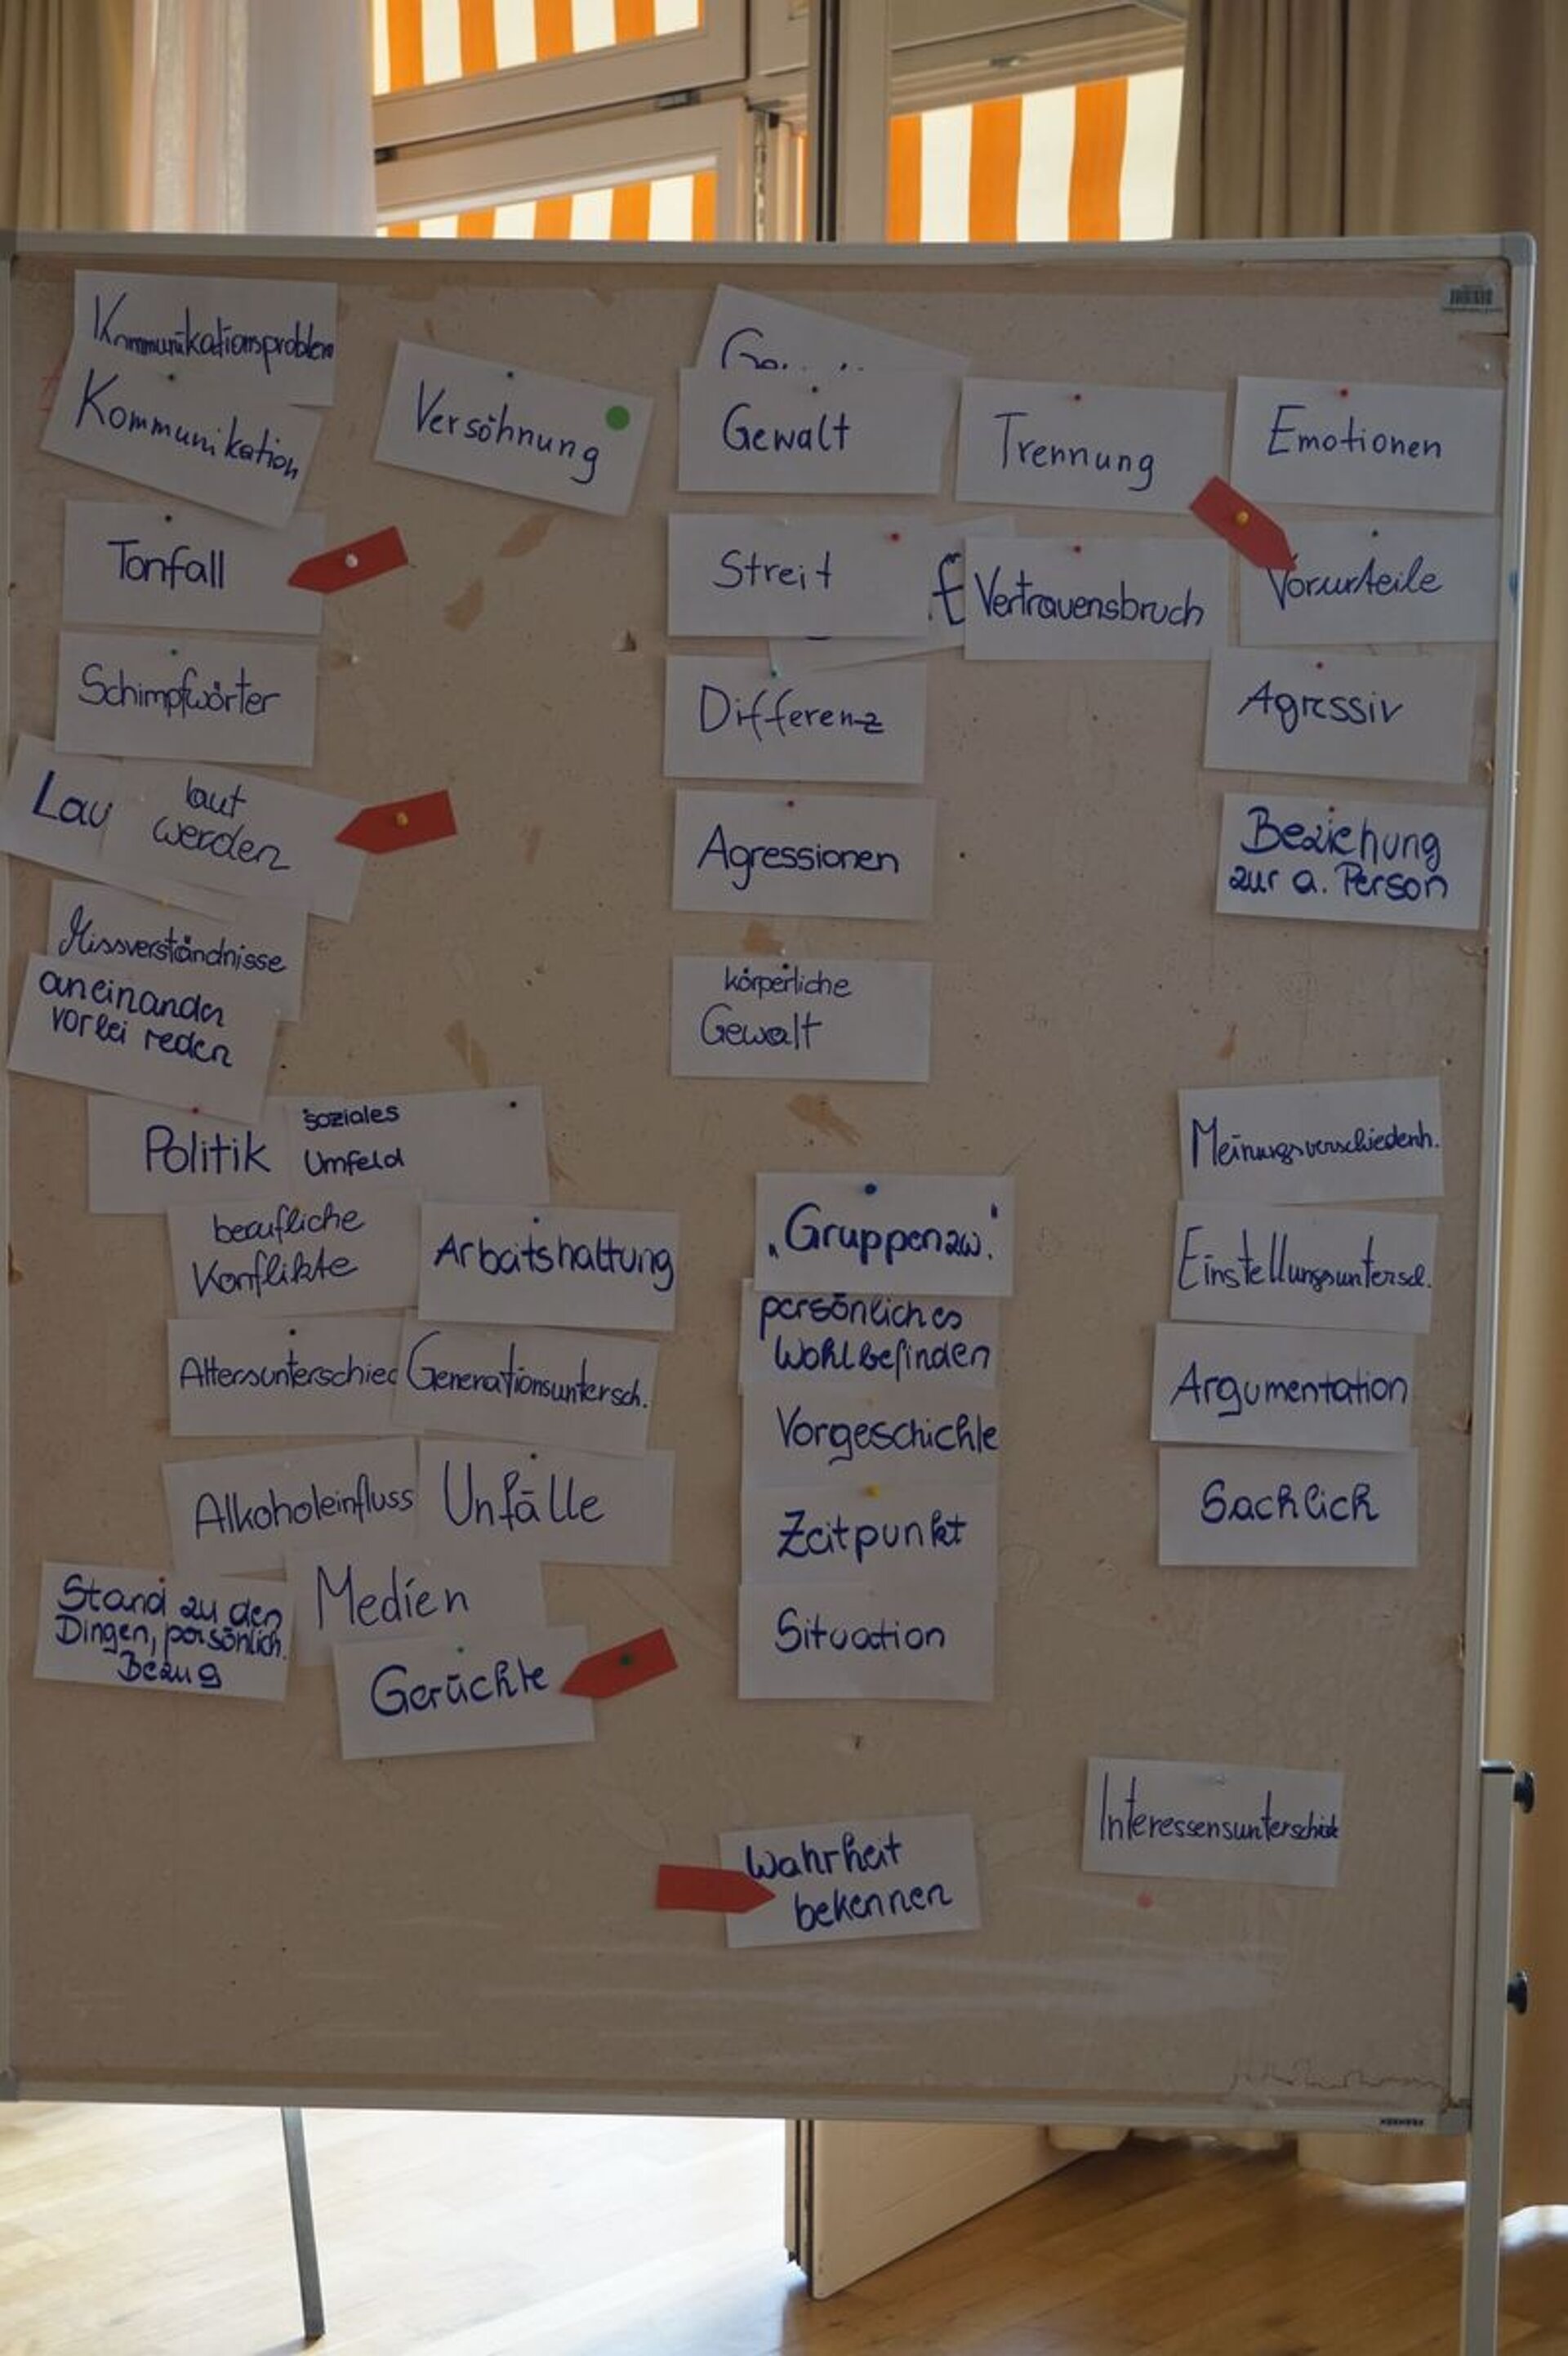 Kommunikationsproblem
Kommunikation
Tonfall
Schimpfwörter
Lau
laut
werden
Missverständnisse
aneinander
vorbei reden
Versöhnung
Gewalt
Streit
Differenz
Agressionen
körperliche
Gewalt
Trennung
Vertrauensbruch
Emotionen
Vorurteile
Agressiv
Beziehung
zur a. Person
Politik
soziales
Umfeld
berufliche
Konflikte
Arbeitshaltung
Altersunterschied
Generationsuntersch.
Alkoholeinfluss
Unfälle
Stand zu den
Dingen, persönlich.
Bezug
Medien
Gerüchte
„Gruppenzw."
persönliches
Wohlbefinden
Vorgeschichte
Zeitpunkt
Situation
Meinungsverschiedenh.
Einstellungsuntersch.
Argumentation
Sachlich
Wahrheit
bekennen
Interessensunterschiede